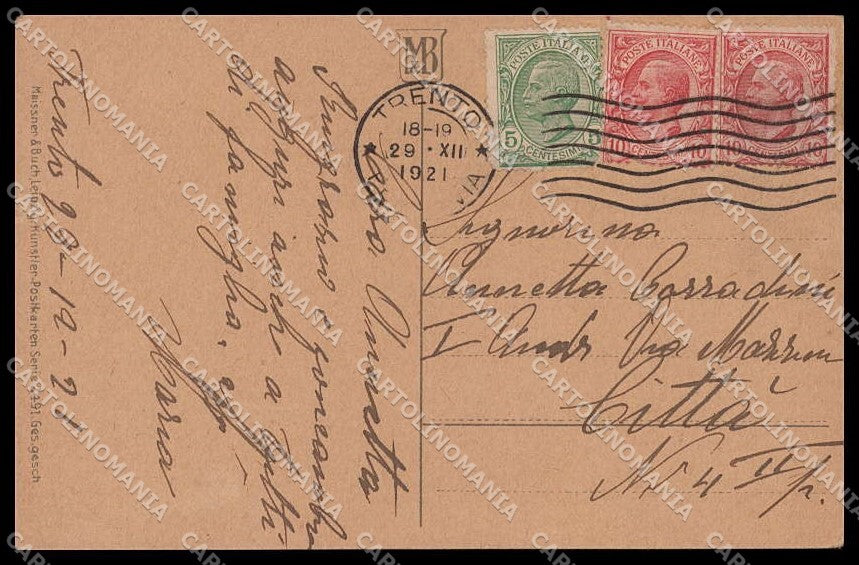 MB
POSTE ITALIANE
5 5
CENTESIMI
POSTE ITALIANE
10 10
CENTESIMI
POSTE ITALIANE
10 10
CENTESIMI
TRENTO
18-19
29 · XII
1921
Signorina
Annetta Corradini
I Andr Via
Città
No 4 II p.
Cara Annetta
Ringrazio e
auguri anche a tutti
di famiglia,
Maria
Trento 29-12-21
Meissner & Buch, Leipzig, Künstler-Postkarten Serie 2491 Ges. gesch
CARTOLINOMANIA